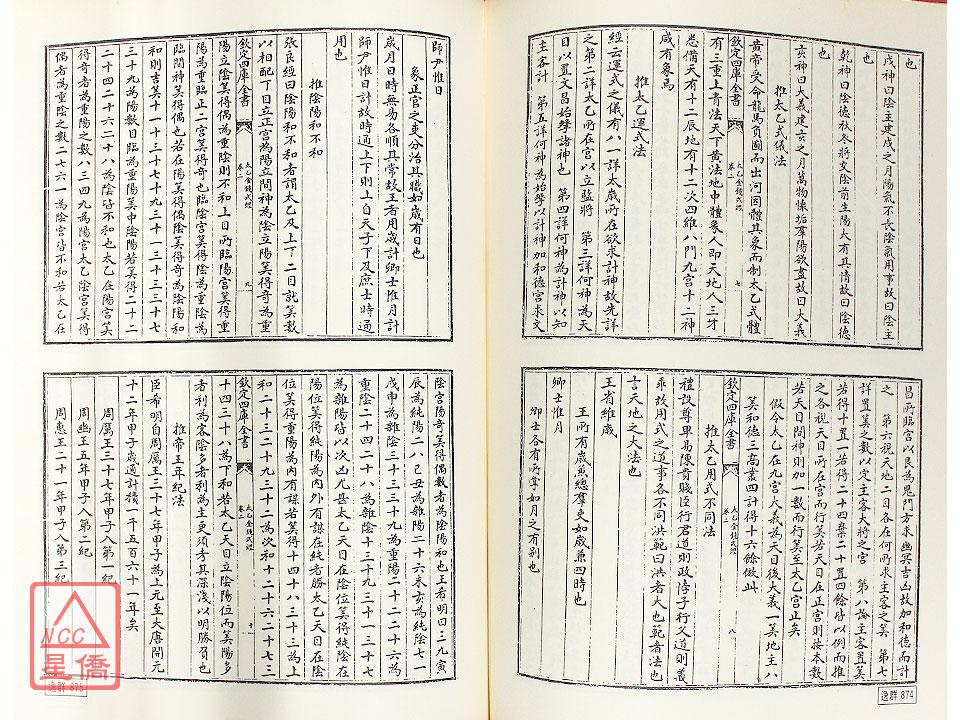 也
戌神曰陰主建戌之月陽氣不長陰氣用事故曰陰主
也
乾神曰陰德秋冬將交陰前生陽大有其情故曰陰德
也
亥神曰大義建亥之月萬物懷垢羣陽欲盡故曰大義
推太乙式儀法
黃帝受命龍馬負圖而出河因體其象而制太乙式體
欽定四庫全書 太乙金鏡式經 卷二 七
有三重上青法天下黃法地中體象人即天地人三才
悉備天有十二辰地有十二次四維八門九宮十二神
咸有象焉
推太乙運式法
經云運式之儀有八一詳太歲所在欲求計神故先詳
之第二詳太乙所在宮以立監將 第三詳何神為天
目以置文昌始擊諸神也 第四詳何神為計神以知
主客計 第五詳何神為始擊以計神加和德宮求文
昌所臨宮以艮為鬼門方求幽冥吉凶故加和德而計
之 第六視天地二目各在何所求主客之筭 第七
詳置筭之數以定主客大將之宮 第八論主客置筭
若得十置一若得二十四棄二十置四餘皆以例而推
之各視天目所在宮而行筭若天目在正宮則按本數
若天目間神則加一數而行筭至太乙宮止矣
假令太乙在九宮大義為天目後大義一筭地主八
筭和德三高叢四計得十六餘做此
欽定四庫全書 太乙金鏡式經 卷二 八
推太乙用式不同法
禮設尊卑易陳貴賤臣行君道則政悖子行父道則叢
乖故用式之道事各不同洪範曰洪者大也範者法也
言天地之大法也
王省維歲
王所有歲兼總羣吏如歲兼四時也
卿士惟月
卿士各有所掌如月之有別也
師尹惟日
象正官之吏分治其職如歲有日也
歲月日時無易各順其常故王者用歲計卿士惟月計
師尹惟日計故時通上下則上自天子下及庶士時通
用也
推陰陽和不和
張良經曰陰陽和不和者謂太乙及上下二目就筭數
以相配下目立正宮為陽立間神為陰立陽筭得奇為重
欽定四庫全書 太乙金鏡式經 卷二 九
陽立陰筭得偶為重陰則不和上目所臨陽宮筭得重
陽為重臨正二宮筭得奇也臨陰宮筭得陰為重陰為
臨間神筭得偶也若在陽筭得偶陰筭得奇為陰陽和
和則吉筭十一十三十七十九三十一三十三三十七
三十九為陽數目臨為重陽筭中陰陽若筭得二十二
二十四二十六二十八為陰皆不和也太乙在陽宮筭
得奇者為重陽之數八三四九為陽宮太乙陰宮筭得
偶者為重陰之數二七六一為陰宮皆不和若太乙在
陰宮陽奇筭得偶數者為陰陽和也王希明曰三九寅
辰為純陽二八己丑為雜陽二十六未亥為純陰七一
戌申為雜陰三十三三十九為重陽二十二二十六為
重陰二十四二十八為雜陰十三十九三十一三十七
為雜陽皆以次凶尤甚太乙天目在陰位筭得純陰在
陽位筭得純陽為內外有謀在純者勝太乙天目在陰
位筭得重陽為內有謀若筭得十四十八三十三為上
和二十三二十九三十二為次和十二十六二十七三
欽定四庫全書 太乙金鏡式經 卷二 十
十四三十八為下和若太乙天目立陰陽位而筭陽多
者利為客陰多者利為主更須考其深淺以明勝負也
推帝王年紀法
臣希明自周厲王三十七年甲子為上元至大唐開元
十二年甲子歲適計積一千五百六十一年矣
周厲王三十七年甲子入第一紀
周幽王五年甲子入第二紀
周惠王二十一年甲子入第三紀
NCC
星僑
逸群 875
逸群 874